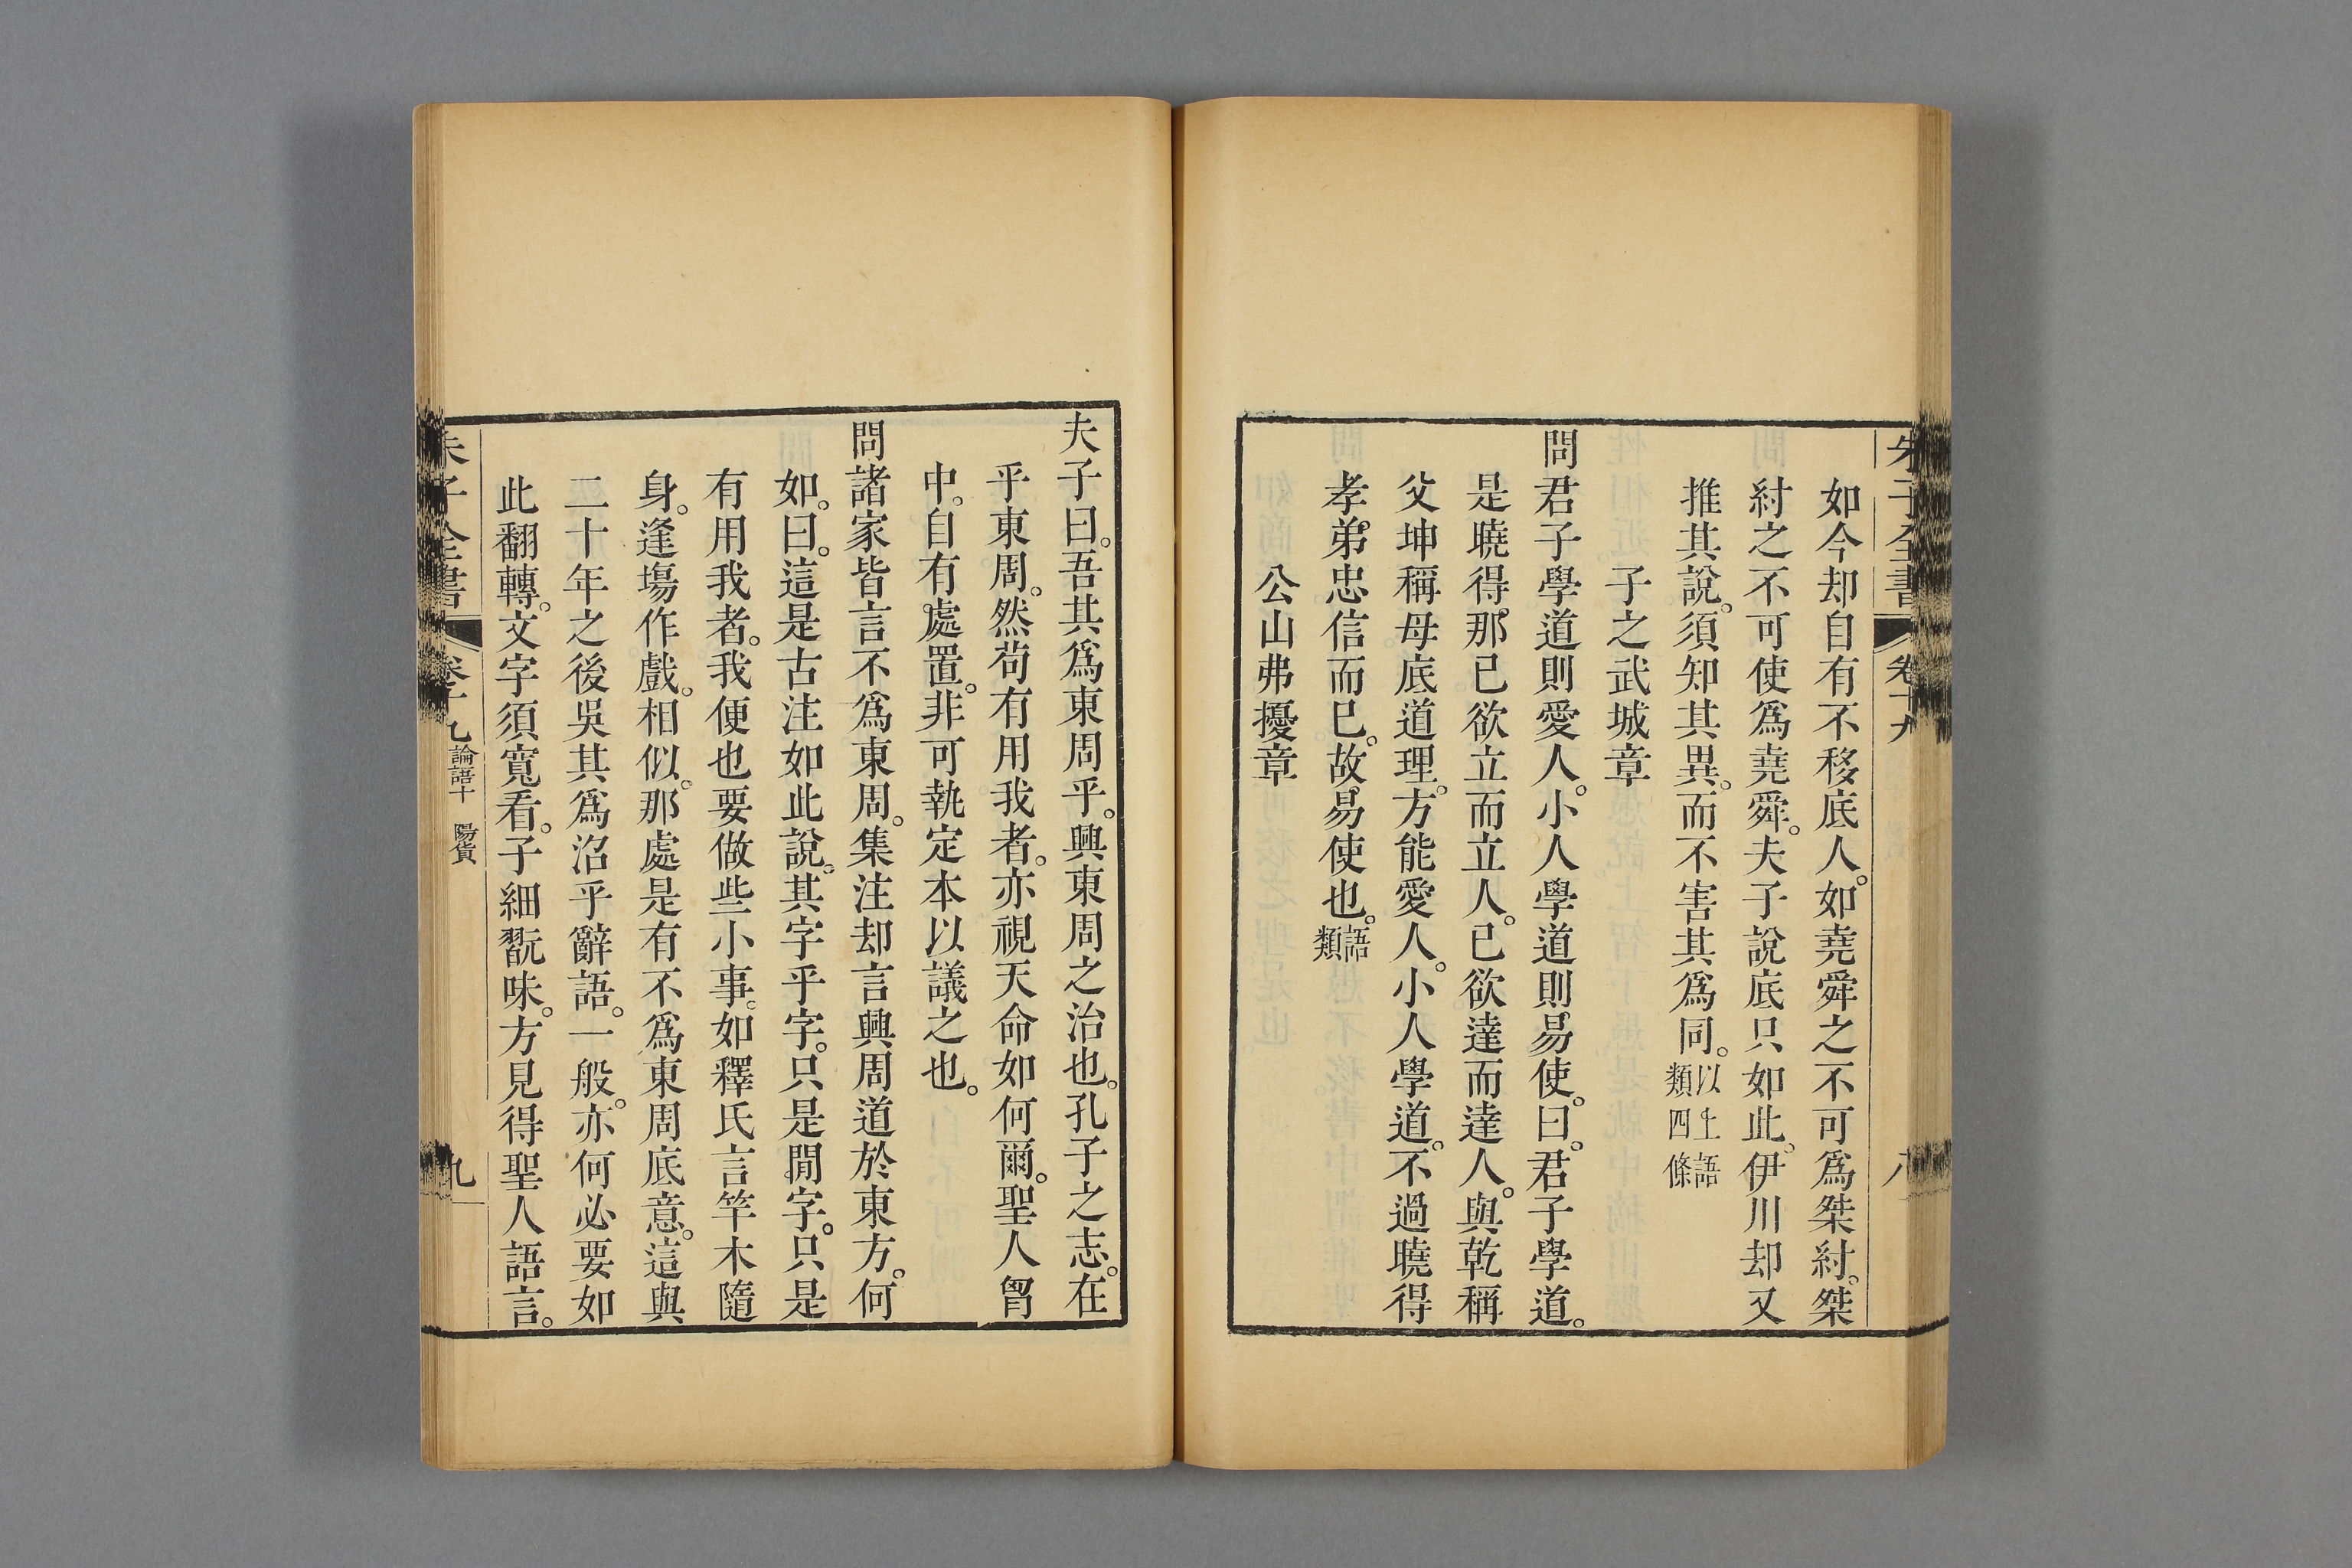 朱子全書 卷十九 八
如今却自有不移底人。如堯舜之不可爲桀紂。桀
紂之不可使爲堯舜。夫子說底只如此。伊川却又
推其說。須知其異。而不害其爲同。以上語類四條
子之武城章
問君子學道則愛人。小人學道則易使。曰。君子學道。
是曉得那己欲立而立人。己欲達而達人。與乾稱
父坤稱母底道理。方能愛人。小人學道。不過曉得
孝弟忠信而已。故易使也。語類
公山弗擾章
夫子曰。吾其爲東周乎。興東周之治也。孔子之志。在
乎東周。然苟有用我者。亦視天命如何爾。聖人胷
中。自有處置。非可執定本以議之也。
問諸家皆言不爲東周。集注却言興周道於東方。何
如。曰。這是古注如此說。其字乎字。只是閒字。只是
有用我者。我便也要做些小事。如釋氏言竿木隨
身。逢場作戲。相似。那處是有不爲東周底意。這與
二十年之後吳其爲沼乎辭語。一般。亦何必要如
此翻轉。文字須寬看。子細翫味。方見得聖人語言。
朱子全書 卷十九 論語十 陽貨 九